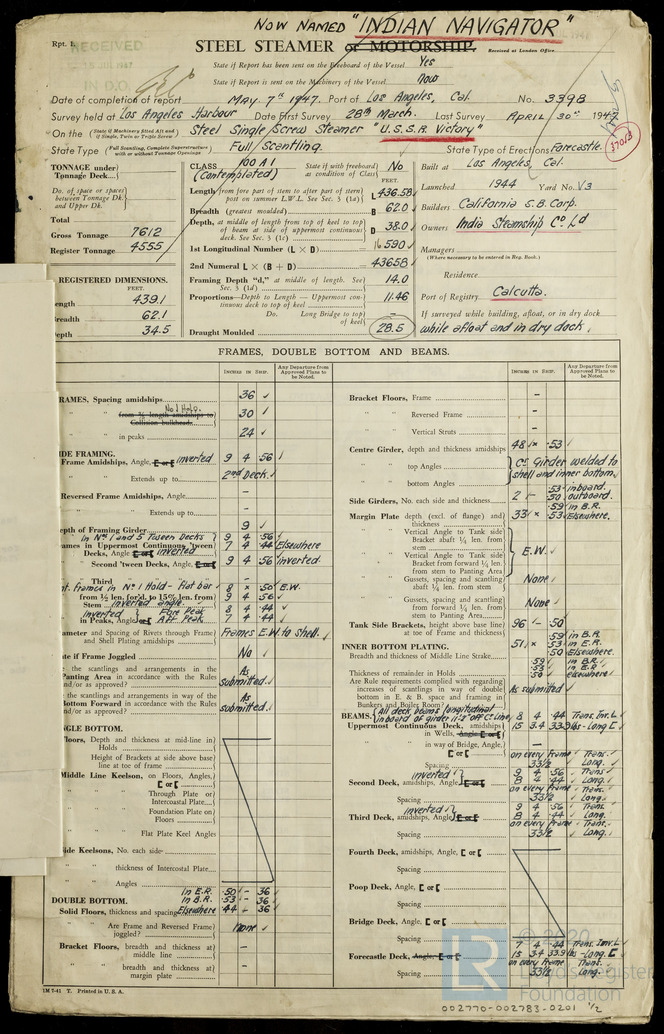 NOW NAMED "INDIAN NAVIGATOR"
Rpt. 1.
RECEIVED
1947
IN D.O.
STEEL STEAMER or MOTORSHIP.
Received at London Office
State if Report has been sent on the Freeboard of the Vessel Yes
State if Report is sent on the Machinery of the Vessel now
Date of completion of report MAY. 7th 1947. Port of Los Angeles, Cal. No. 3398
Survey held at Los Angeles Harbour Date First Survey 28th March. Last Survey APRIL 30th 1947
On the (State if Machinery fitted Aft and if Single, Twin or Triple Screw) Steel Single Screw Steamer "U.S.S.R. Victory" 37013
State Type (Full Scantling, Complete Superstructure with or without Tonnage Openings) Full Scantling. State Type of Erections Forecastle.
TONNAGE under Tonnage Deck...
Do. of space or spaces between Tonnage Dk. and Upper Dk.
Total
Gross Tonnage 7612
Register Tonnage 4555
REGISTERED DIMENSIONS.
FEET.
ength 439.1
readth 62.1
epth 34.5
CLASS 100 A1 (Contemplated) State if with freeboard as condition of Class No
Length (from fore part of stem to after part of stern post on summer L.W.L. See Sec. 3 (1a) L 436.58
Breadth (greatest moulded) B 62.0
Depth, at middle of length from top of keel to top of beam at side of uppermost continuous deck. See Sec. 3 (1c) D 38.0
1st Longitudinal Number (L × D) 16590
2nd Numeral L × (B + D) 43658
Framing Depth "d," at middle of length. See Sec. 3 (1d) 14.0
Proportions—Depth to Length—Uppermost continuous deck to top of keel 11.46
Do. Long Bridge to top of keel -
Draught Moulded 28.5
Built at Los Angeles, Cal.
Launched 1944 Yard No. V3
Builders California S.B. Corp.
Owners India Steamship Co. Ld
Managers
(Where necessary to be entered in Reg. Book.)
Residence
Port of Registry Calcutta.
If surveyed while building, afloat, or in dry dock
while afloat and in dry dock.
FRAMES, DOUBLE BOTTOM AND BEAMS.
INCHES IN SHIP. Any Departure from Approved Plans to be Noted.
RAMES, Spacing amidships 36
No 1 Hold.
" " from ⅗ length amidships to Collision bulkhead 30
" " in peaks 24
IDE FRAMING.
Frame Amidships, Angle, [ or [ inverted 9 4 .56
" " Extends up to 2nd Deck.
Reversed Frame Amidships, Angle -
" " Extends up to -
epth of Framing Girder 9
In No 1 and 5 Tween Decks 9 4 .56
rames in Uppermost Continuous 'tween Decks, Angle, [ or [ inverted 7 4 .44 Elsewhere
" Second 'tween Decks, Angle, [ or [ 9 4 .56 inverted
" Third -
nt. frames in No 1 Hold - Flat bar 8 × .50 E.W.
from ⅕ len. for'd. to 15% len. from Stem inverted angle. 9 4 .56
inverted Fore Peak 8 4 .44
in Peaks, Angle [ or [ Aft Peak 7 4 .44
iameter and Spacing of Rivets through Frame and Shell Plating amidships Frames E.W. to shell.
ate if Frame Joggled No
e the scantlings and arrangements in the Panting Area in accordance with the Rules and/or as approved? As submitted.
e the scantlings and arrangements in way of the Bottom Forward in accordance with the Rules and/or as approved? As submitted.
NGLE BOTTOM.
loors, Depth and thickness at mid-line in Holds
" Height of Brackets at side above base line at toe of frame
Middle Line Keelson, on Floors, Angles, [ or [
" " Through Plate or Intercostal Plate
" " Foundation Plate on Floors
" " Flat Plate Keel Angles
ide Keelsons, No. each side
" " thickness of Intercostal Plate
" " Angles
DOUBLE BOTTOM.
Solid Floors, thickness and spacing
In E.R. .50 - 36
In B.R. .53 - 36
Elsewhere .44 - 36
" " Are Frame and Reversed Frame joggled? None
Bracket Floors, breadth and thickness at middle line -
" " breadth and thickness at margin plate -
INCHES IN SHIP. Any Departure from Approved Plans to be Noted.
Bracket Floors, Frame -
" " Reversed Frame -
" " Vertical Struts -
Centre Girder, depth and thickness amidships 48 × .53
" " top Angles
" " bottom Angles
Cr. Girder welded to shell and inner bottom.
Side Girders, No. each side and thickness 2 - .53 inboard. .50 outboard.
Margin Plate depth (excl. of flange) and thickness 33 × .59 in B.R. .53 Elsewhere.
" " Vertical Angle to Tank side Bracket abaft ¼ len. from stem
" " Vertical Angle to Tank side Bracket from forward ¼ len. from stem to Panting Area
E.W.
" " Gussets, spacing and scantling abaft ¼ len. from stem None
" " Gussets, spacing and scantling from forward ¼ len. from stem to Panting Area None
Tank Side Brackets, height above base line at toe of Frame and thickness 96 - .50
INNER BOTTOM PLATING.
Breadth and thickness of Middle Line Strake 51 × .59 in B.R. .53 in E.R. .50 Elsewhere.
Thickness of remainder in Holds .59 in B.R. .53 in E.R. .50 elsewhere
Are Rule requirements complied with regarding increases of scantlings in way of double bottom in E. & B. space and framing in Bunkers and Boiler Room? As submitted
BEAMS. (All deck beams longitudinal inboard of girder 11'2" off Cr. Line,
Uppermost Continuous Deck, amidships in Wells, Angle [ or [ 8 4 .44 Trans. Inv. L
15 3.4 33.9 lbs - Long. [
" " in way of Bridge, Angle, [ or [ -
Spacing on every Frame Trans. 33½ Long.
inverted
Second Deck, amidships, Angle, [ or [ 9 4 .56 Trans
8 4 .44 Long.
Spacing on every Frame Trans. 33½ Long.
inverted
Third Deck, amidships, Angle, [ or [ 9 4 .56 Trans
8 4 .44 Long.
Spacing on every Frame Trans. 33½ Long.
Fourth Deck, amidships, Angle, [ or [
Spacing
Poop Deck, Angle, [ or [
Spacing
Bridge Deck, Angle, [ or [
Spacing
Forecastle Deck, Angle, [ or [ 7 4 .44 Trans. Inv. L
15 3.4 33.9 lbs - Long. [
Spacing on every Frame Trans. 33½ Long.
1M 7-41 T. Printed in U. S. A.
LR
© 2020
Lloyd's Register
Foundation
002770-002783-0201 1/2